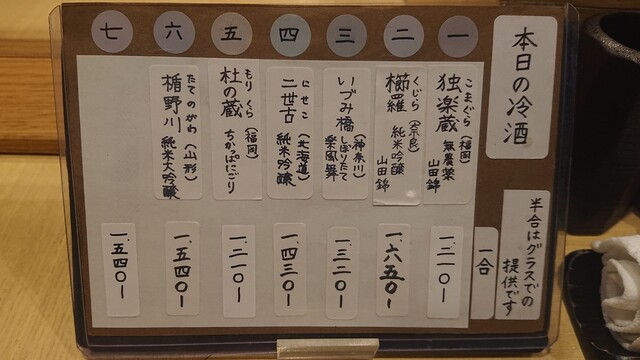 本日の冷酒
半合はグラスでの
提供です
一合
一
こまぐら
独楽蔵（福岡）
無農薬
山田錦
一.二一〇ー
二
くじら
櫛羅（奈良）
純米吟醸
山田錦
一.六五〇ー
三
いづみ橋（神奈川）
しぼりたて
楽風舞
一.三二〇ー
四
にせこ
二世古（北海道）
純米吟醸
一.四三〇ー
五
もり くら
杜の蔵（福岡）
ちかっぱにごり
一.二一〇ー
六
たてのがわ
楯野川（山形）
純米大吟醸
一.五四〇ー
七
一.五四〇ー